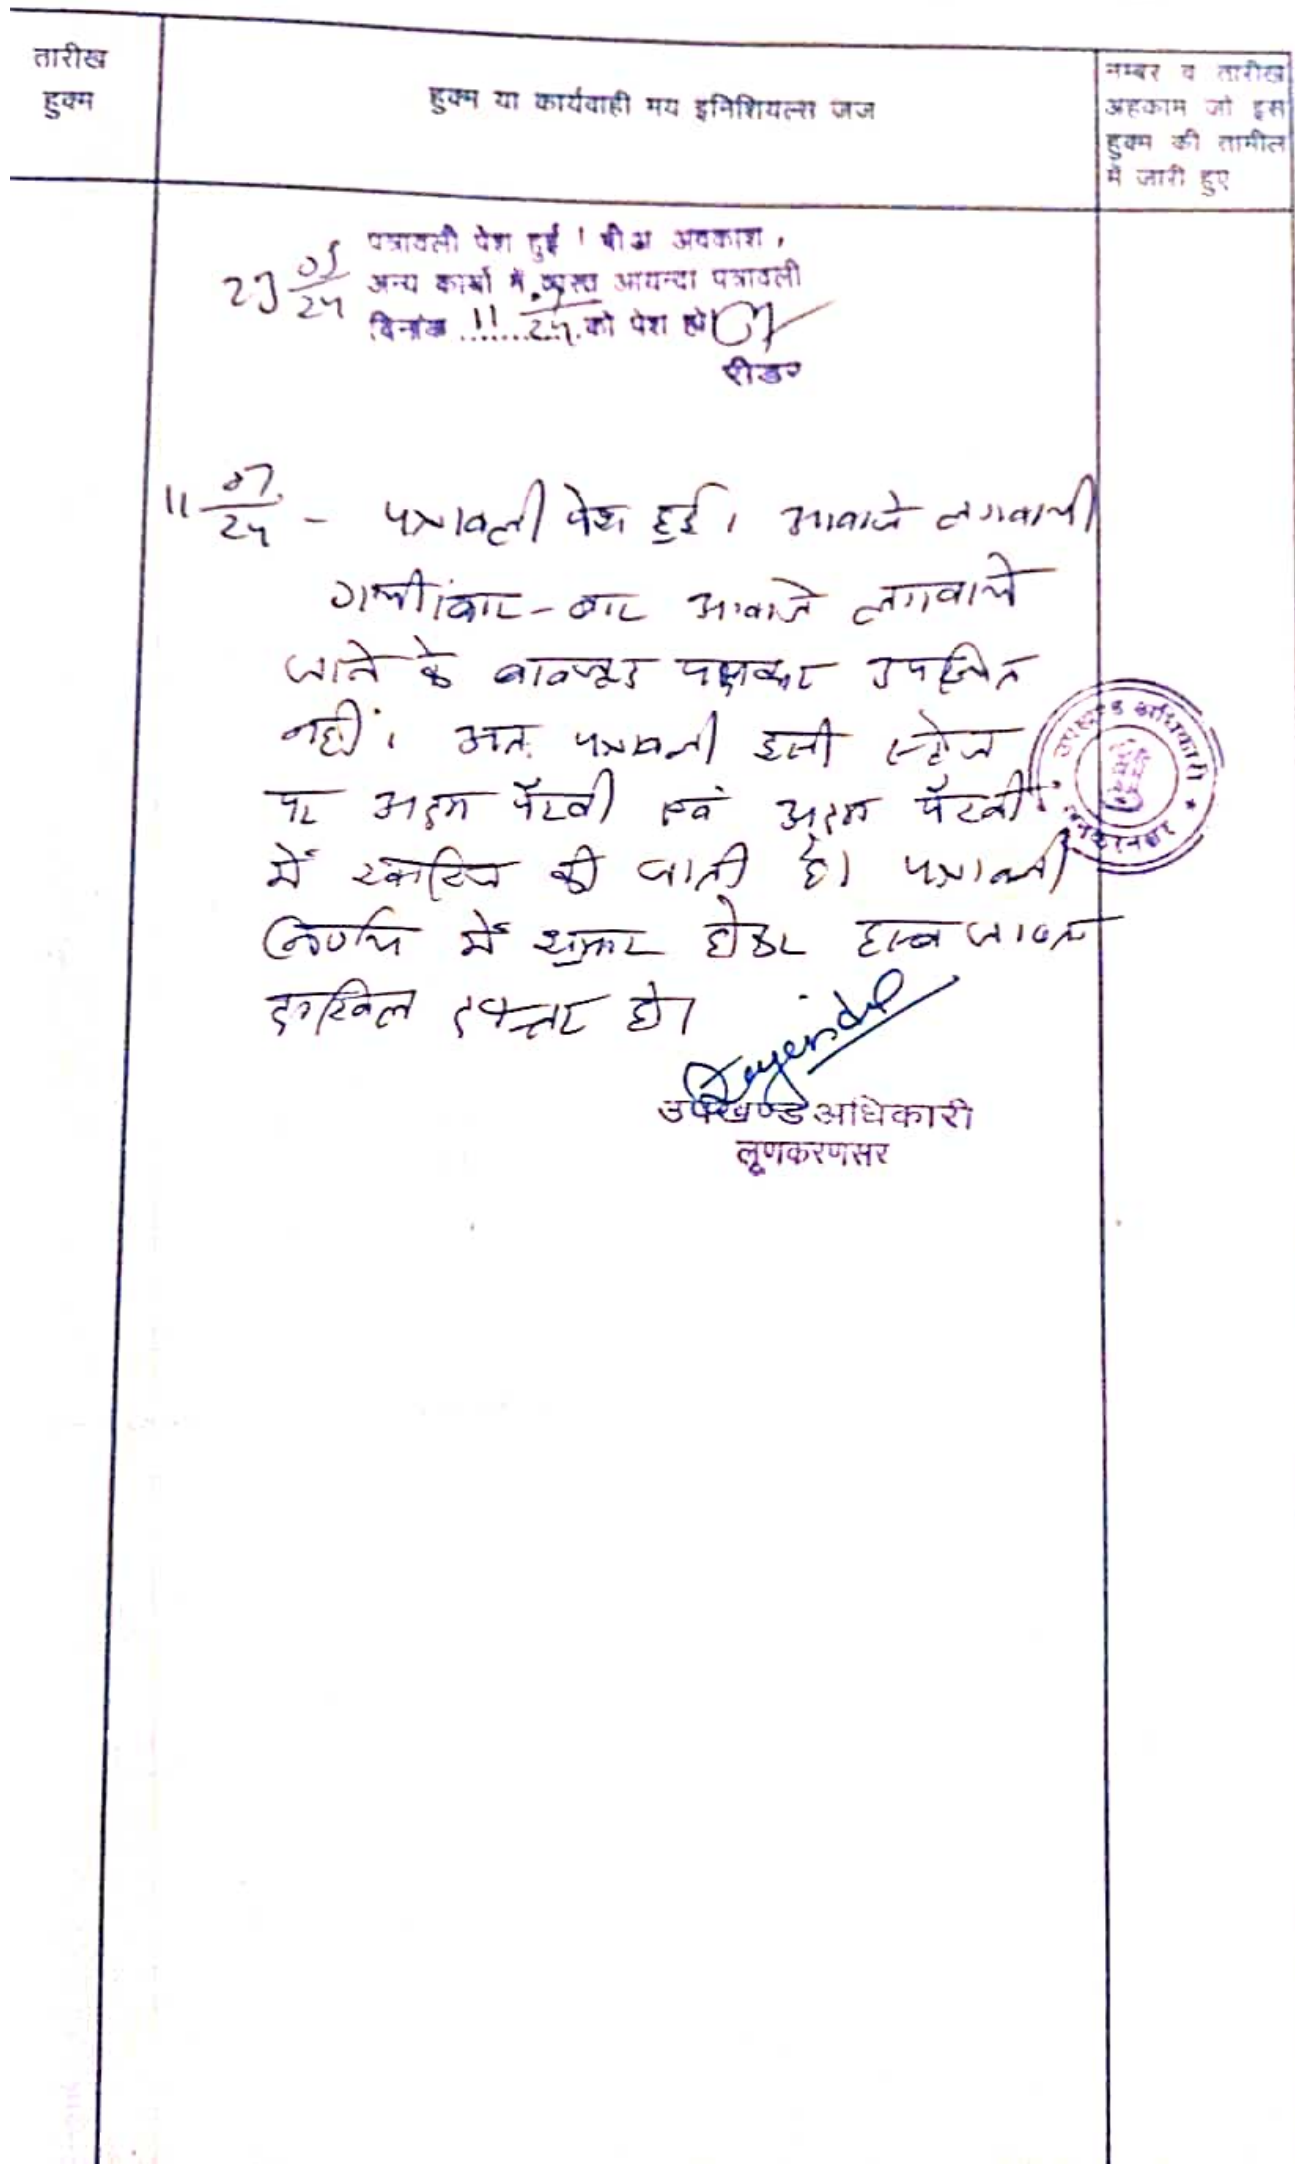 तारीख
हुक्म
हुक्म या कार्यवाही मय इनिशियल्स जज
नम्बर व तारीख
अहकाम जो इस
हुक्म की तामील
में जारी हुए
पत्रावली पेश हुई । पीअ अवकाश,
अन्य कार्यो में व्यस्त आयन्दा पत्रावली
दिनांक ..11.. 07/24 को पेश हो
रीडर
11 07/24 - पत्रावली पेश हुई। आवाजे लगवायी
गयी। बार-बार आवाजे लगवाये
जाने के बावजूद पक्षकार उपस्थित
नहीं। अतः पत्रावली इसी स्टेज
पर अदम पैरवी एवं अदम पैरवी
में खारिज की जाती है। पत्रावली
निर्णय में शुमार होकर हस्ब जाब्ता
दाखिल दफ्तर हो।
उपखण्ड अधिकारी
उपखण्ड अधिकारी
लूणकरणसर